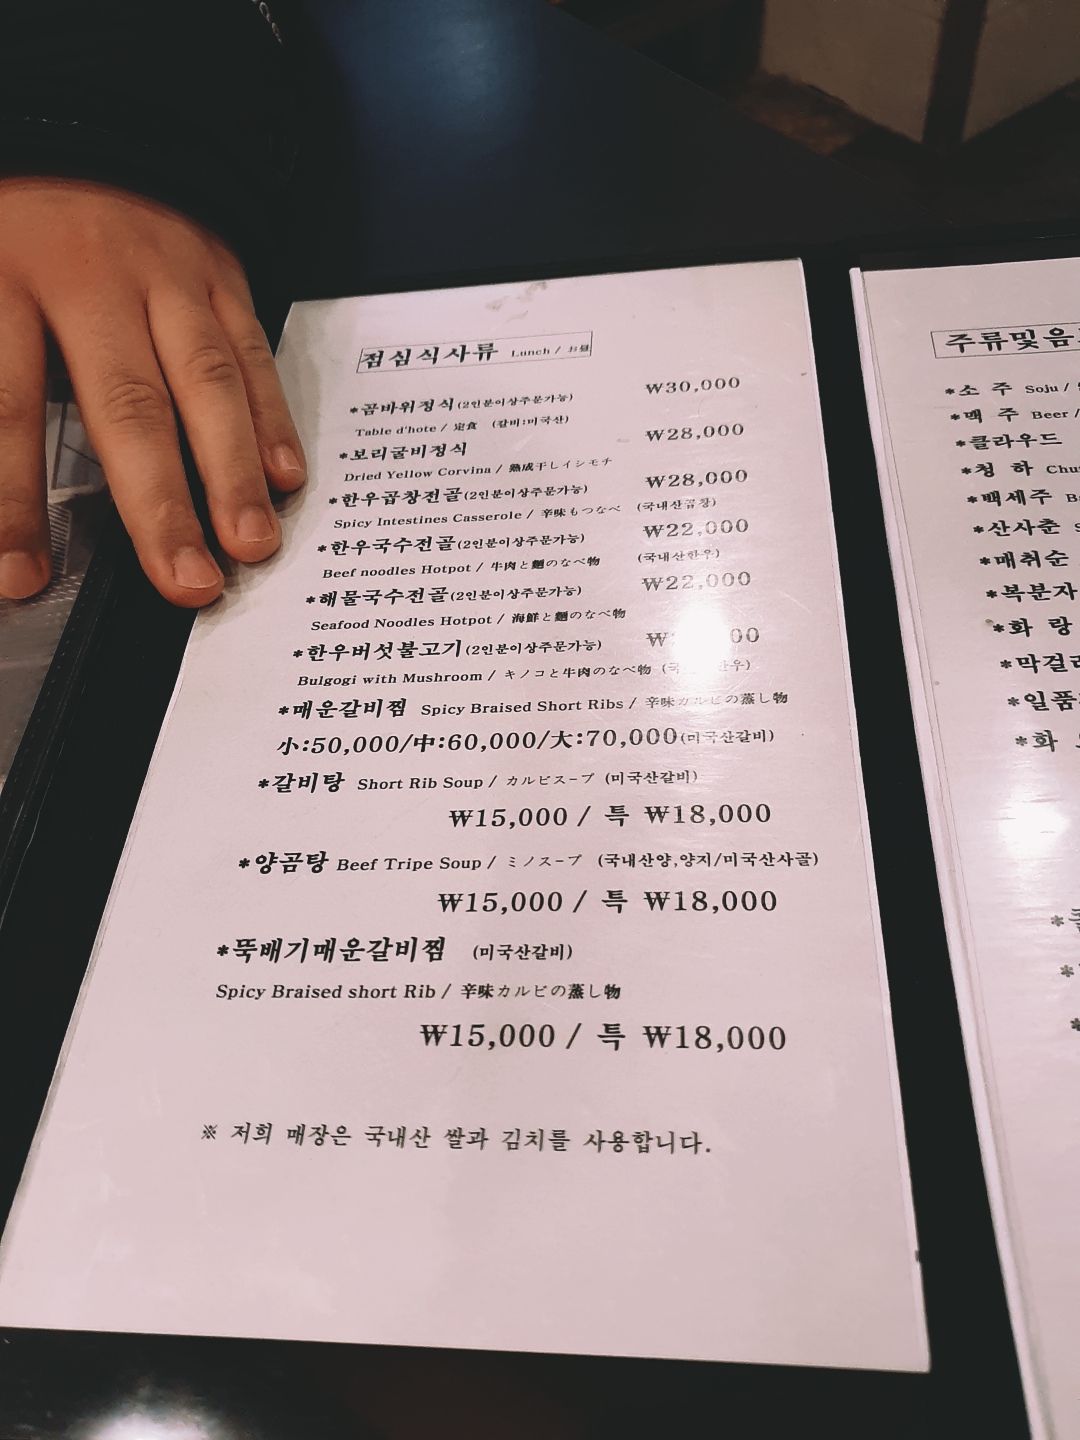 점심식사류 Lunch / お昼
*곰바위정식(2인분이상주문가능) ₩30,000
Table d'hote / 定食 (갈비:미국산)
*보리굴비정식 ₩28,000
Dried Yellow Corvina / 熟成干しイシモチ
*한우곱창전골(2인분이상주문가능) ₩28,000
Spicy Intestines Casserole / 辛味もつなべ (국내산곱창)
*한우국수전골(2인분이상주문가능) ₩22,000
Beef noodles Hotpot / 牛肉と麵のなべ物 (국내산한우)
*해물국수전골(2인분이상주문가능) ₩22,000
Seafood Noodles Hotpot / 海鮮と麵のなべ物
*한우버섯불고기(2인분이상주문가능)
Bulgogi with Mushroom / キノコと牛肉のなべ物
*매운갈비찜 Spicy Braised Short Ribs / 辛味カルビの蒸し物
小:50,000/中:60,000/大:70,000(미국산갈비)
*갈비탕 Short Rib Soup / カルビスープ (미국산갈비)
₩15,000 / 특 ₩18,000
*양곰탕 Beef Tripe Soup / ミノスープ (국내산양,양지/미국산사골)
₩15,000 / 특 ₩18,000
*뚝배기매운갈비찜 (미국산갈비)
Spicy Braised short Rib / 辛味カルビの蒸し物
₩15,000 / 특 ₩18,000
※ 저희 매장은 국내산 쌀과 김치를 사용합니다.
주류및음
*소 주 Soju /
*맥 주 Beer /
*클라우드
*청 하
*백세주
*산사춘
*매취순
*복분자
*화 랑
*막걸리
*일품
*화